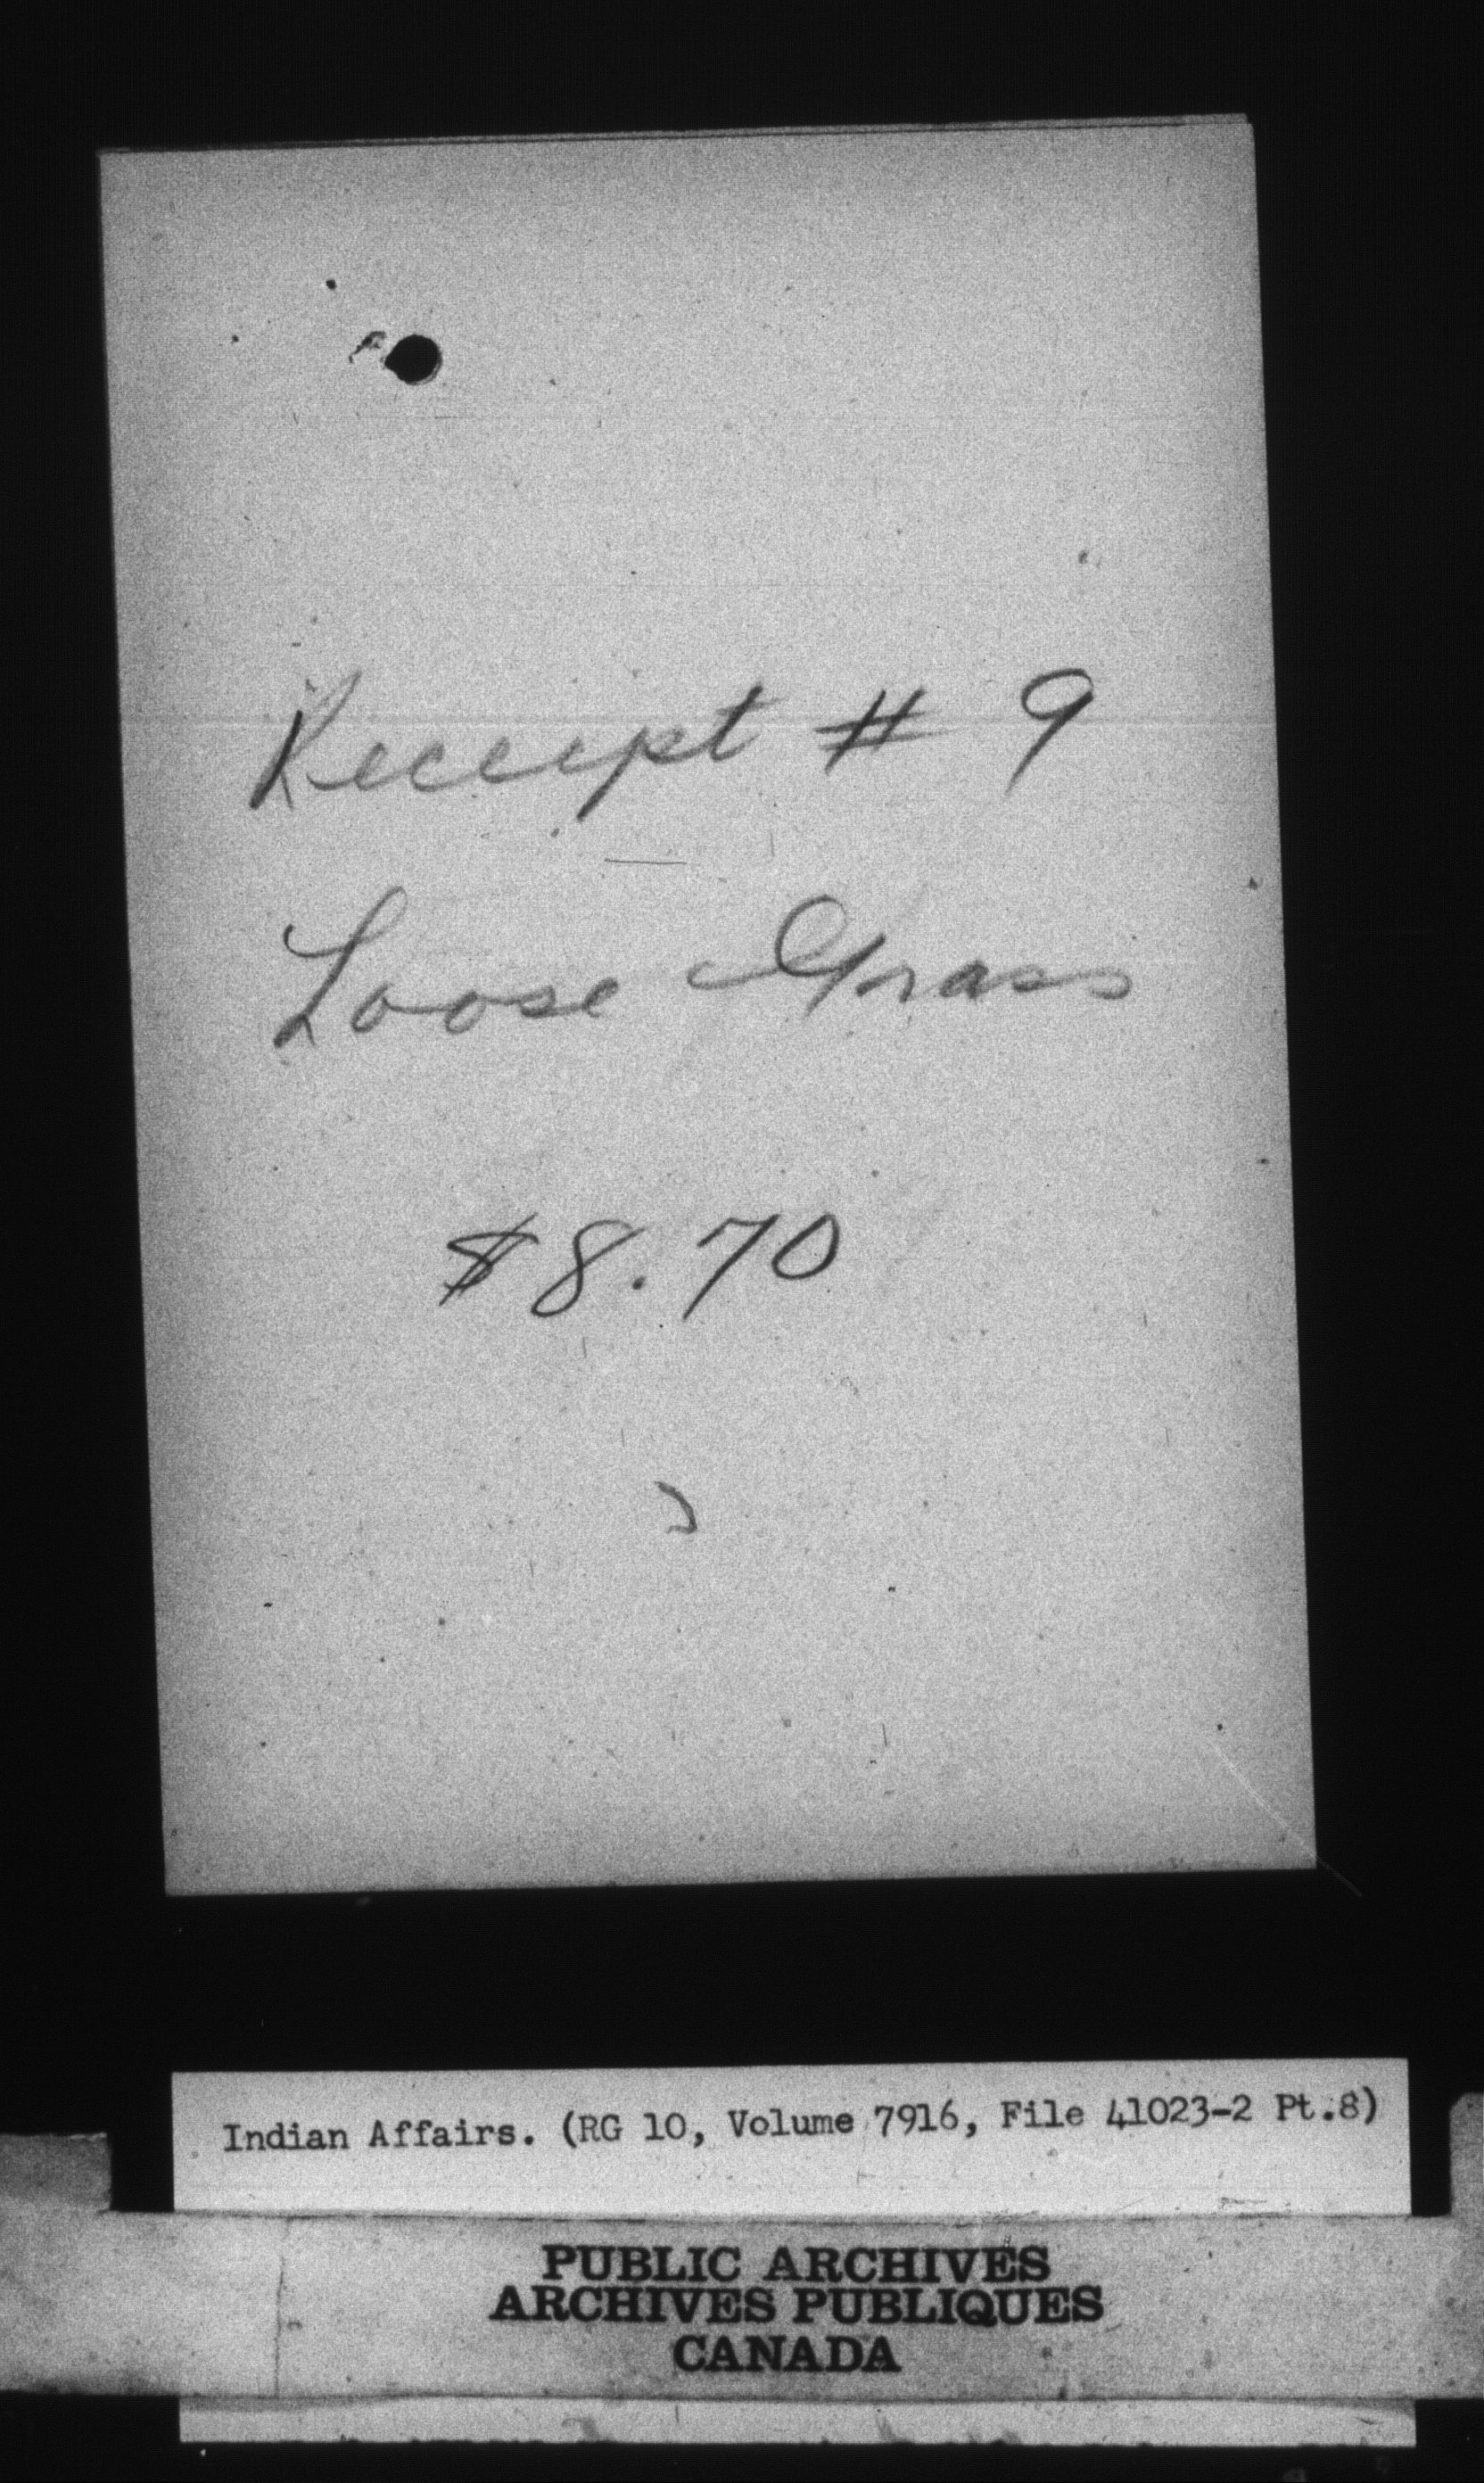 Receipt # 9
Loose Grass
$8.70
Indian Affairs. (RG 10, Volume 7916, File 41023-2 Pt.8)
PUBLIC ARCHIVES
ARCHIVES PUBLIQUES
CANADA